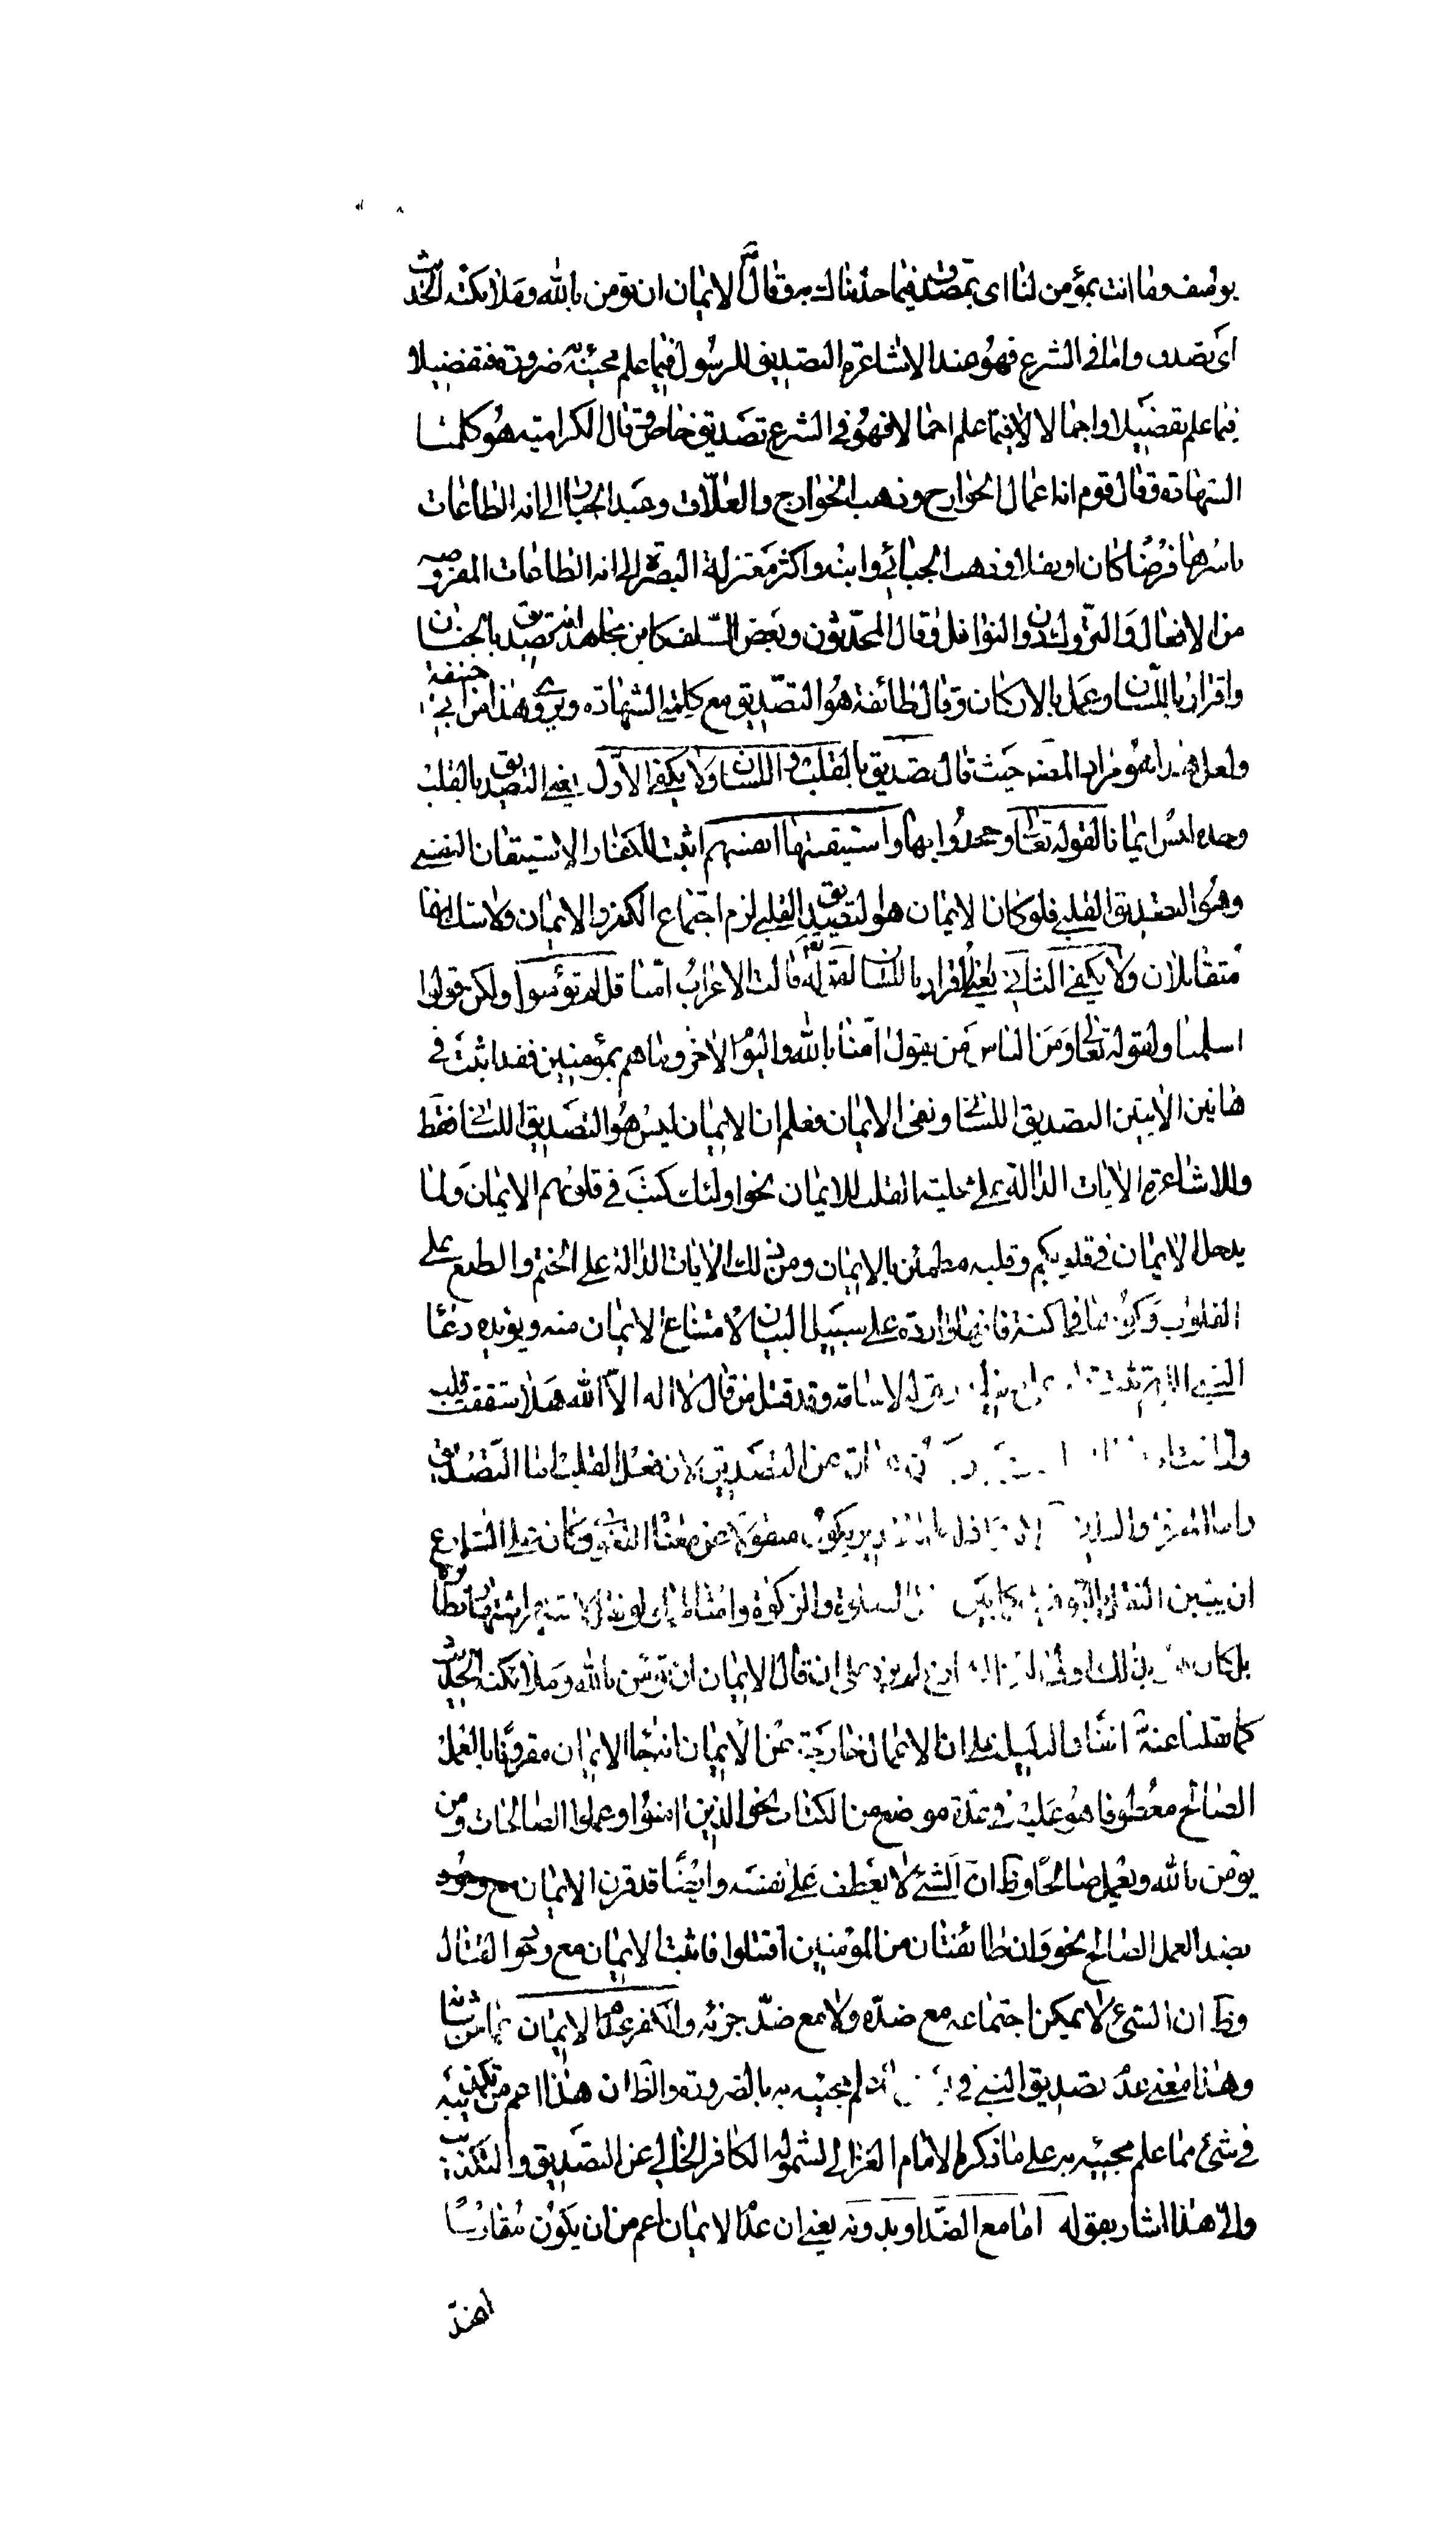 يوسف وما انت بمؤمن لنا اى بمصدق فيما حدثناك به وقال الايمان ان تؤمن بالله وملائكته الحديث
اى تصدق واما فى الشرع فهو عند الاشاعرة التصديق للرسول فيما علم مجيئه ضرورة فتفصيلا
فيما علم تفصيلا واجمالا فيما علم اجمالا فهو فى الشرع تصديق خاص وقال الكرامية هو كلمتا
الشهادة وقال قوم انه اعمال الجوارح وذهب الخوارج والعلاف وعبد الجبار الى انه الطاعات
باسرها فرضا كان او نفلا وذهب الجبائى وابنه واكثر معتزلة البصرة الى انه الطاعات المفروضة
من الافعال والتروك دون النوافل وقال المحدثون وبعض السلف كابن مجاهد انه تصديق بالجنان
واقرار باللسان وعمل بالاركان وقال طائفة هو التصديق مع كلمتى الشهادة ويروى هذا من ابى حنيفة
ولعل هذا هو مراد المصنف حيث قال تصديق بالقلب واللسان ولا يكفى الاول يعنى التصديق بالقلب
وحده ليس ايمانا لقوله تعالى وجحدوا بها واستيقنتها انفسهم اثبت للكفار الاستيقان النفسى
وهو التصديق القلبى فلو كان الايمان هو التصديق القلبى لزم اجتماع الكفر والايمان ولا شك انهما
متقابلان ولا يكفى الثانى يعنى الاقرار باللسان لقوله تعالى قالت الاعراب امنا قل لم تؤمنوا ولكن قولوا
اسلمنا ولقوله تعالى ومن الناس من يقول امنا بالله واليوم الاخر وما هم بمؤمنين فقد اثبت فى
هاتين الايتين التصديق اللسانى ونفى الايمان فعلم ان الايمان ليس هو التصديق اللسانى فقط
وللاشاعرة الايات الدالة على محلية القلب للايمان نحو اولئك كتب فى قلوبهم الايمان ولما
يدخل الايمان فى قلوبكم وقلبه مطمئن بالايمان ومن ذلك الايات الدالة على الختم والطبع على
القلوب وكونها فى اكنة فانها واردة على سبيل البيان لامتناع الايمان منه ويؤيده دعاء
النبى اللهم ثبت قلبى على دينك وقوله لاسامة وقد قتل من قال لا اله الا الله هلا شققت قلبه
واذا ثبت عن التصديق لان فعل القلب اما التصديق
واما المعرفة والثانى منقولا عن معناه اللغوى وكان على الشارع
ان يبين النقل بالتوقيف كما بين نقل الصلوة والزكوة وامثالهما
بل كان ذلك اولى لم يزد على ان قال الايمان ان تؤمن بالله وملائكته الحديث
كما نقلنا عنه انفا والدليل على ان الاعمال خارجة عن الايمان انه جا الايمان مقرونا بالعمل
الصالح معطوفا هو عليه فى عدة موضع من الكتاب نحو الذين امنوا وعملوا الصالحات ومن
يؤمن بالله ويعمل صالحا وظ ان الشئ لا يعطف على نفسه وايضا قد قرن الايمان
بضد العمل الصالح نحو وان طائفتان من المؤمنين اقتتلوا فاثبت الايمان مع وجود القتال
وظ ان الشئ لا يمكن اجتماعه مع ضده ولا مع ضد جزئه والكفر عدم الايمان عما من شانه
وهذا معنى عدم تصديق النبى فى علم مجيئه به بالضرورة والظ ان هذا اعم من تكذيبه
فى شئ مما علم مجيئه به على ما ذكره الامام الغزالى لشموله الكافر الخالى عن التصديق والتكذيب
والى هذا اشار بقوله اما مع الضد او بدونه يعنى ان عدم الايمان اعم من ان يكون مقارنا
لضد